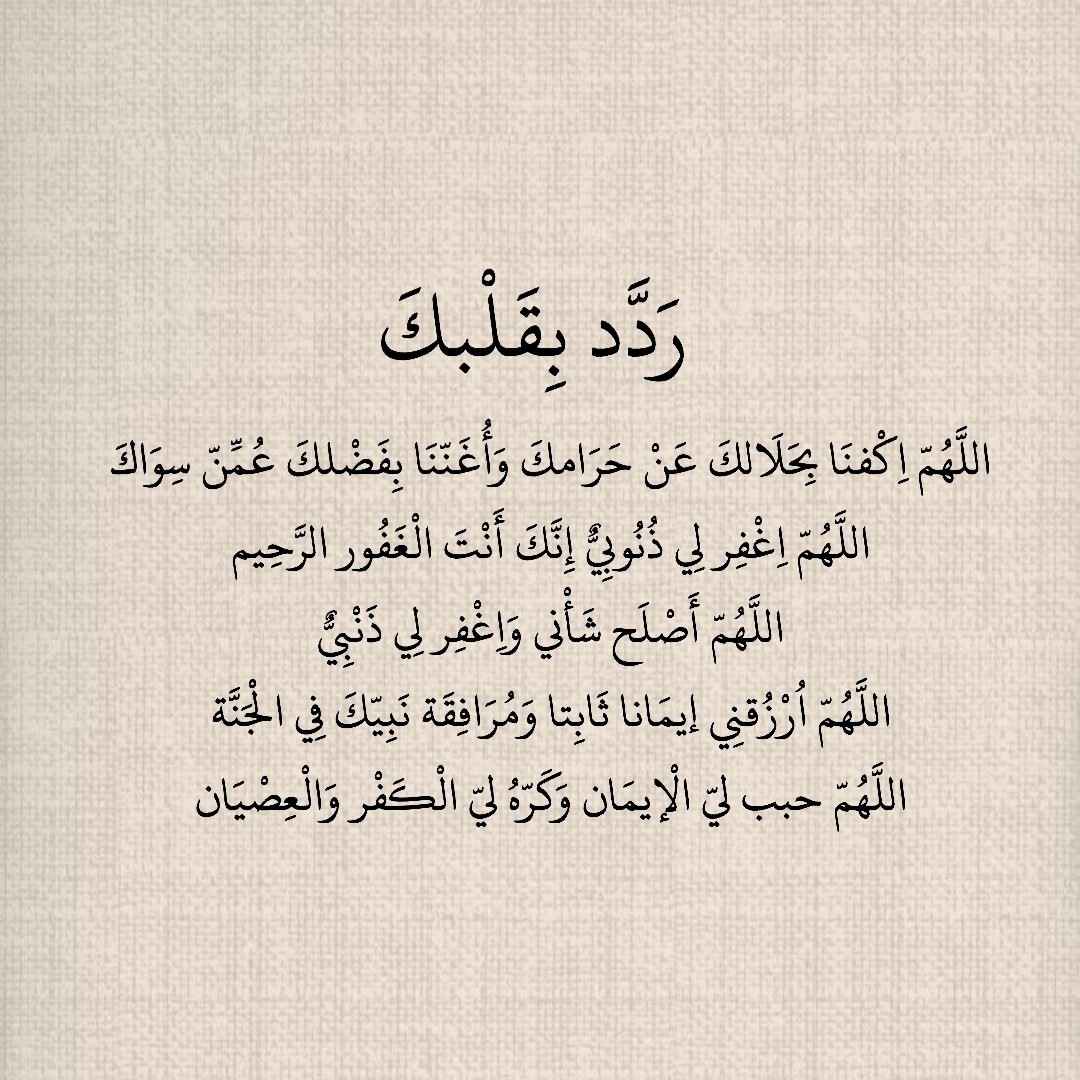 رَدَّد بِقَلْبكَ
اللَّهُمّ اِكْفنَا بِحَلَالكَ عَنْ حَرَامكَ وَأُغَنّنَا بِفَضْلكَ عُمِّنّ سِوَاكَ
اللَّهُمّ اِغْفِر لِي ذُنُوبِيٌّ إِنَّكَ أَنْتَ الْغَفُور الرَّحِيم
اللَّهُمّ أَصْلَح شَأْني وَاِغْفِر لِي ذَنْبِيٌّ
اللَّهُمّ اُرْزُقنِي إيمَانا ثَابِتا وَمُرَافِقَة نَبِيّكَ فِي الْجَنَّة
اللَّهُمّ حبب ليّ الْإيمَان وَكَرّهُ ليّ الْكَفْر وَالْعِصْيَان